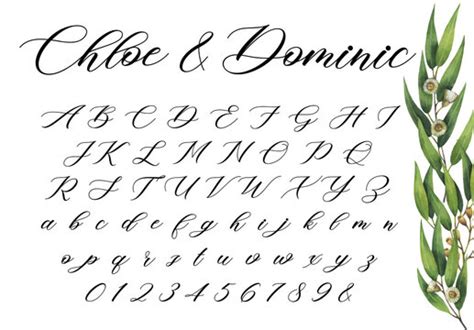 Chloe & Dominic
A B C D E F G H I
J K L M N O P Q
R S T U V W X Y Z
a b c d e f g h i j k l m n
o p q r s t u v w x y z
0 1 2 3 4 5 6 7 8 9 &